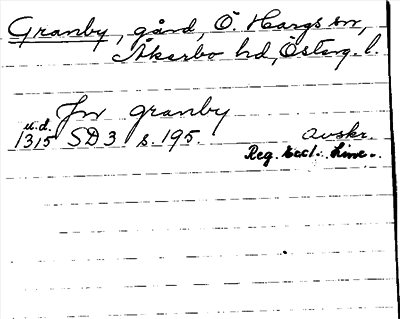 Granby, gård, Ö. Hargs sn,
Åkerbo hd, Österg. l.
Jn granby
u.d.
1315 SD 3 s. 195. avskr.
Reg. Eccl. Linc.